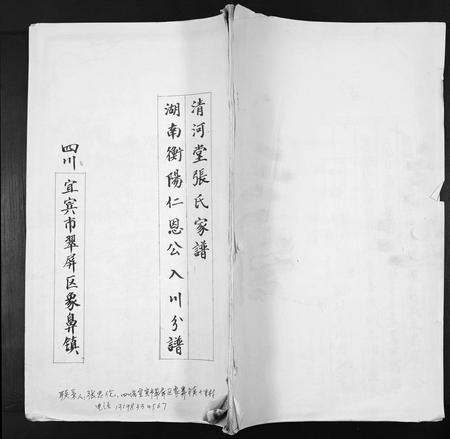 清河堂張氏家譜
湖南衡陽仁恩公入川分譜
四川
宜宾市翠屏区象鼻镇
联系人,张忠伦,四川省宜宾市翠屏区象鼻镇
电话